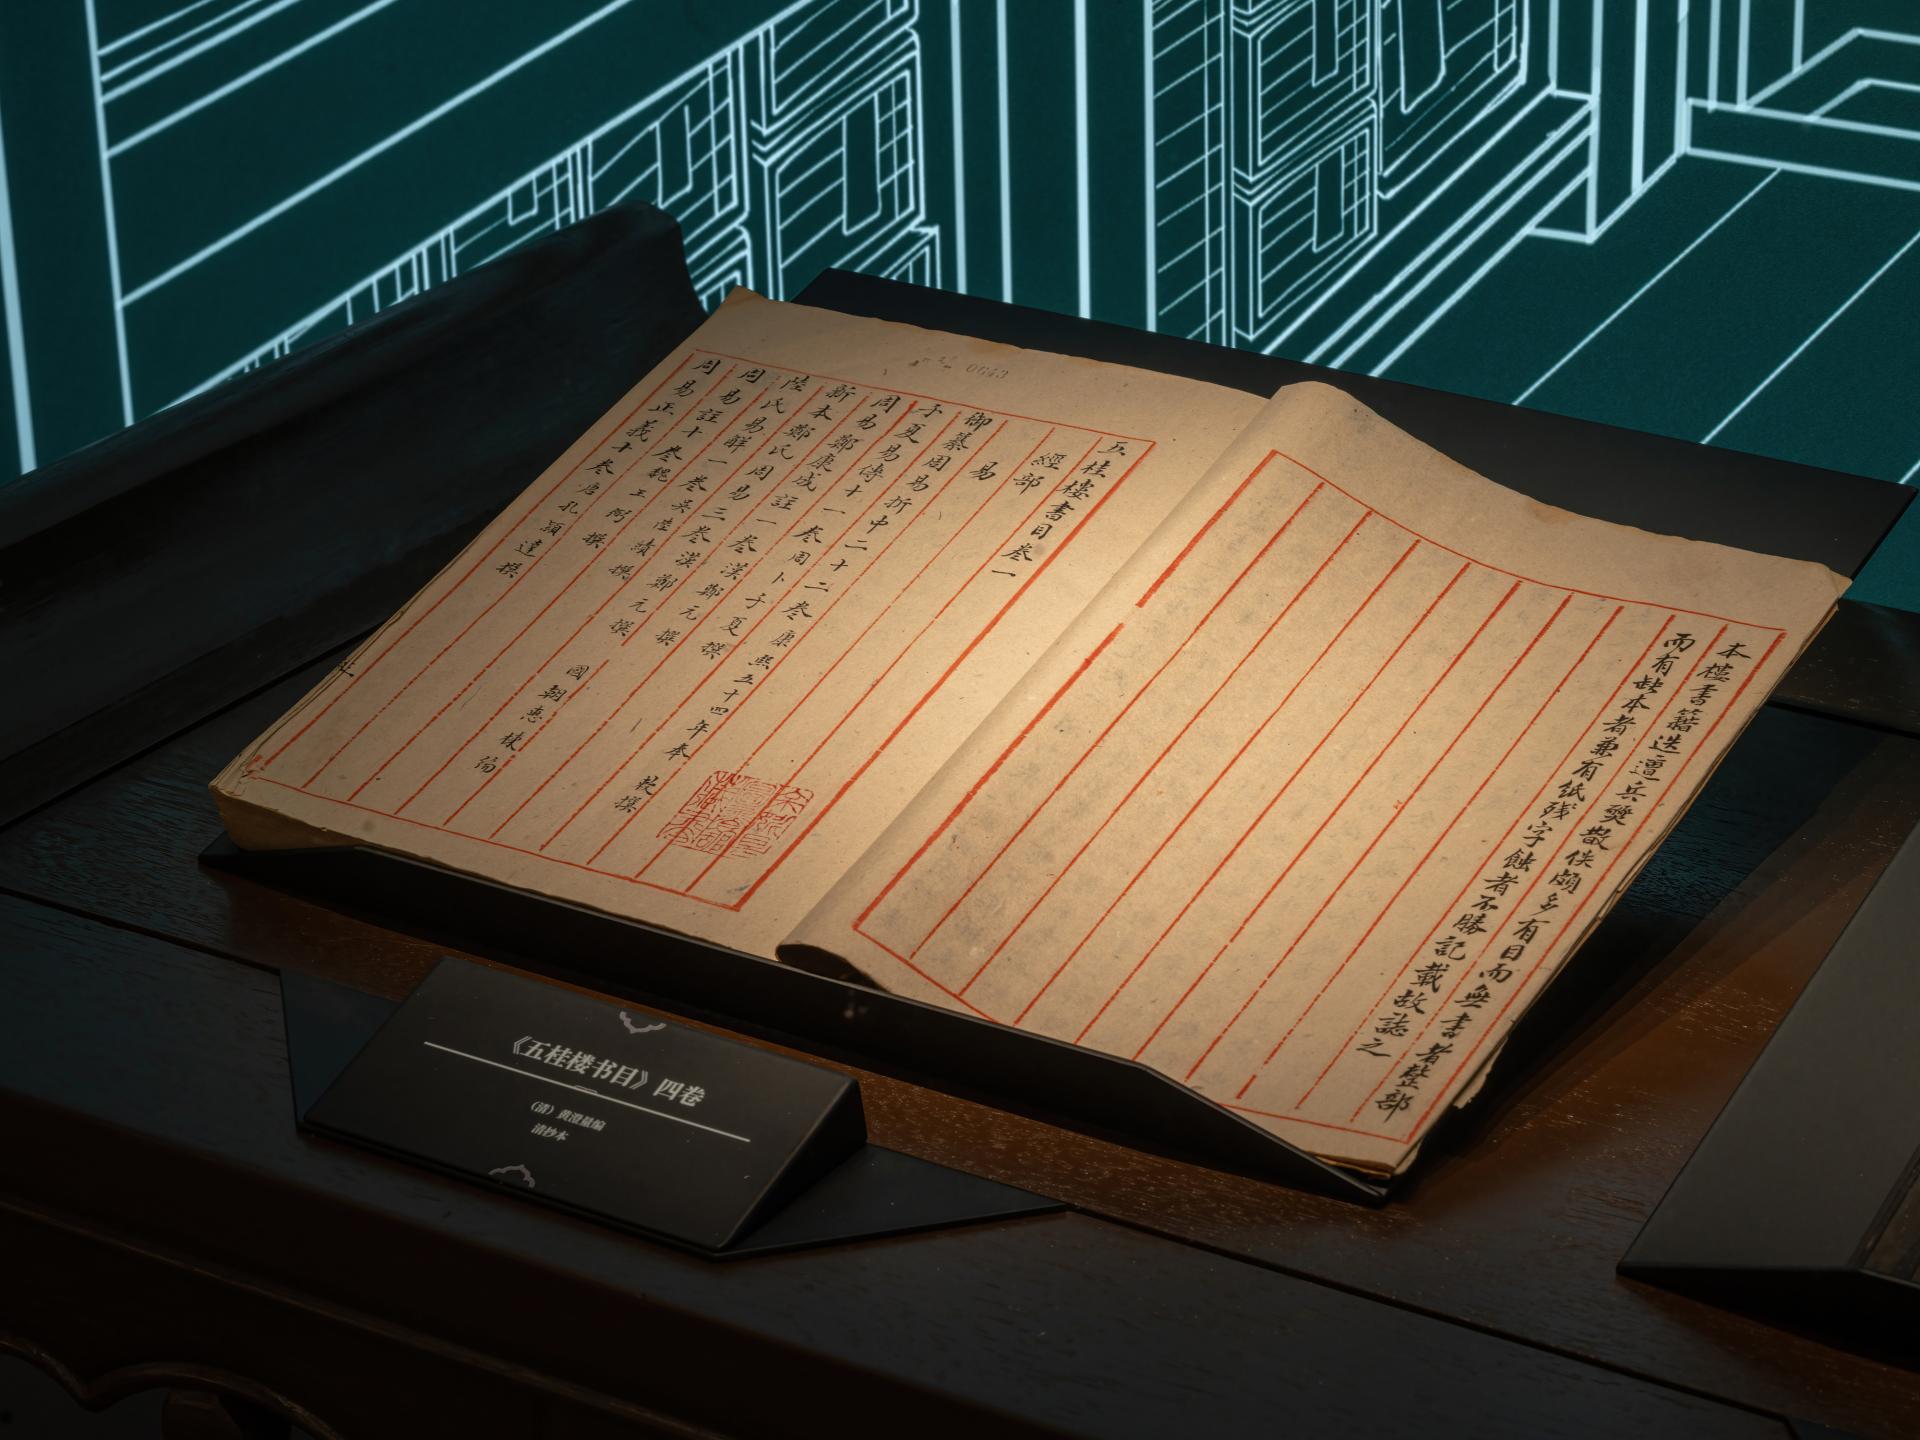 本樓書籍迭遭兵燹散佚頗多有目而無書者整部
而有缺本者兼有紙殘字蝕者不勝記載故誌之
五桂樓書目卷一
經部
易
御纂周易折中二十二卷康熙五十四年奉 敕撰
子夏易傳十一卷周卜子夏撰
周易鄭康成註一卷漢鄭元撰
新本鄭氏周易三卷漢鄭元撰 國朝惠棟編
陸氏易解一卷吳陸績撰
周易註十卷魏王弼撰
周易正義十卷唐孔穎達撰
0643
《五桂楼书目》四卷
（清）黄澄量编
清抄本